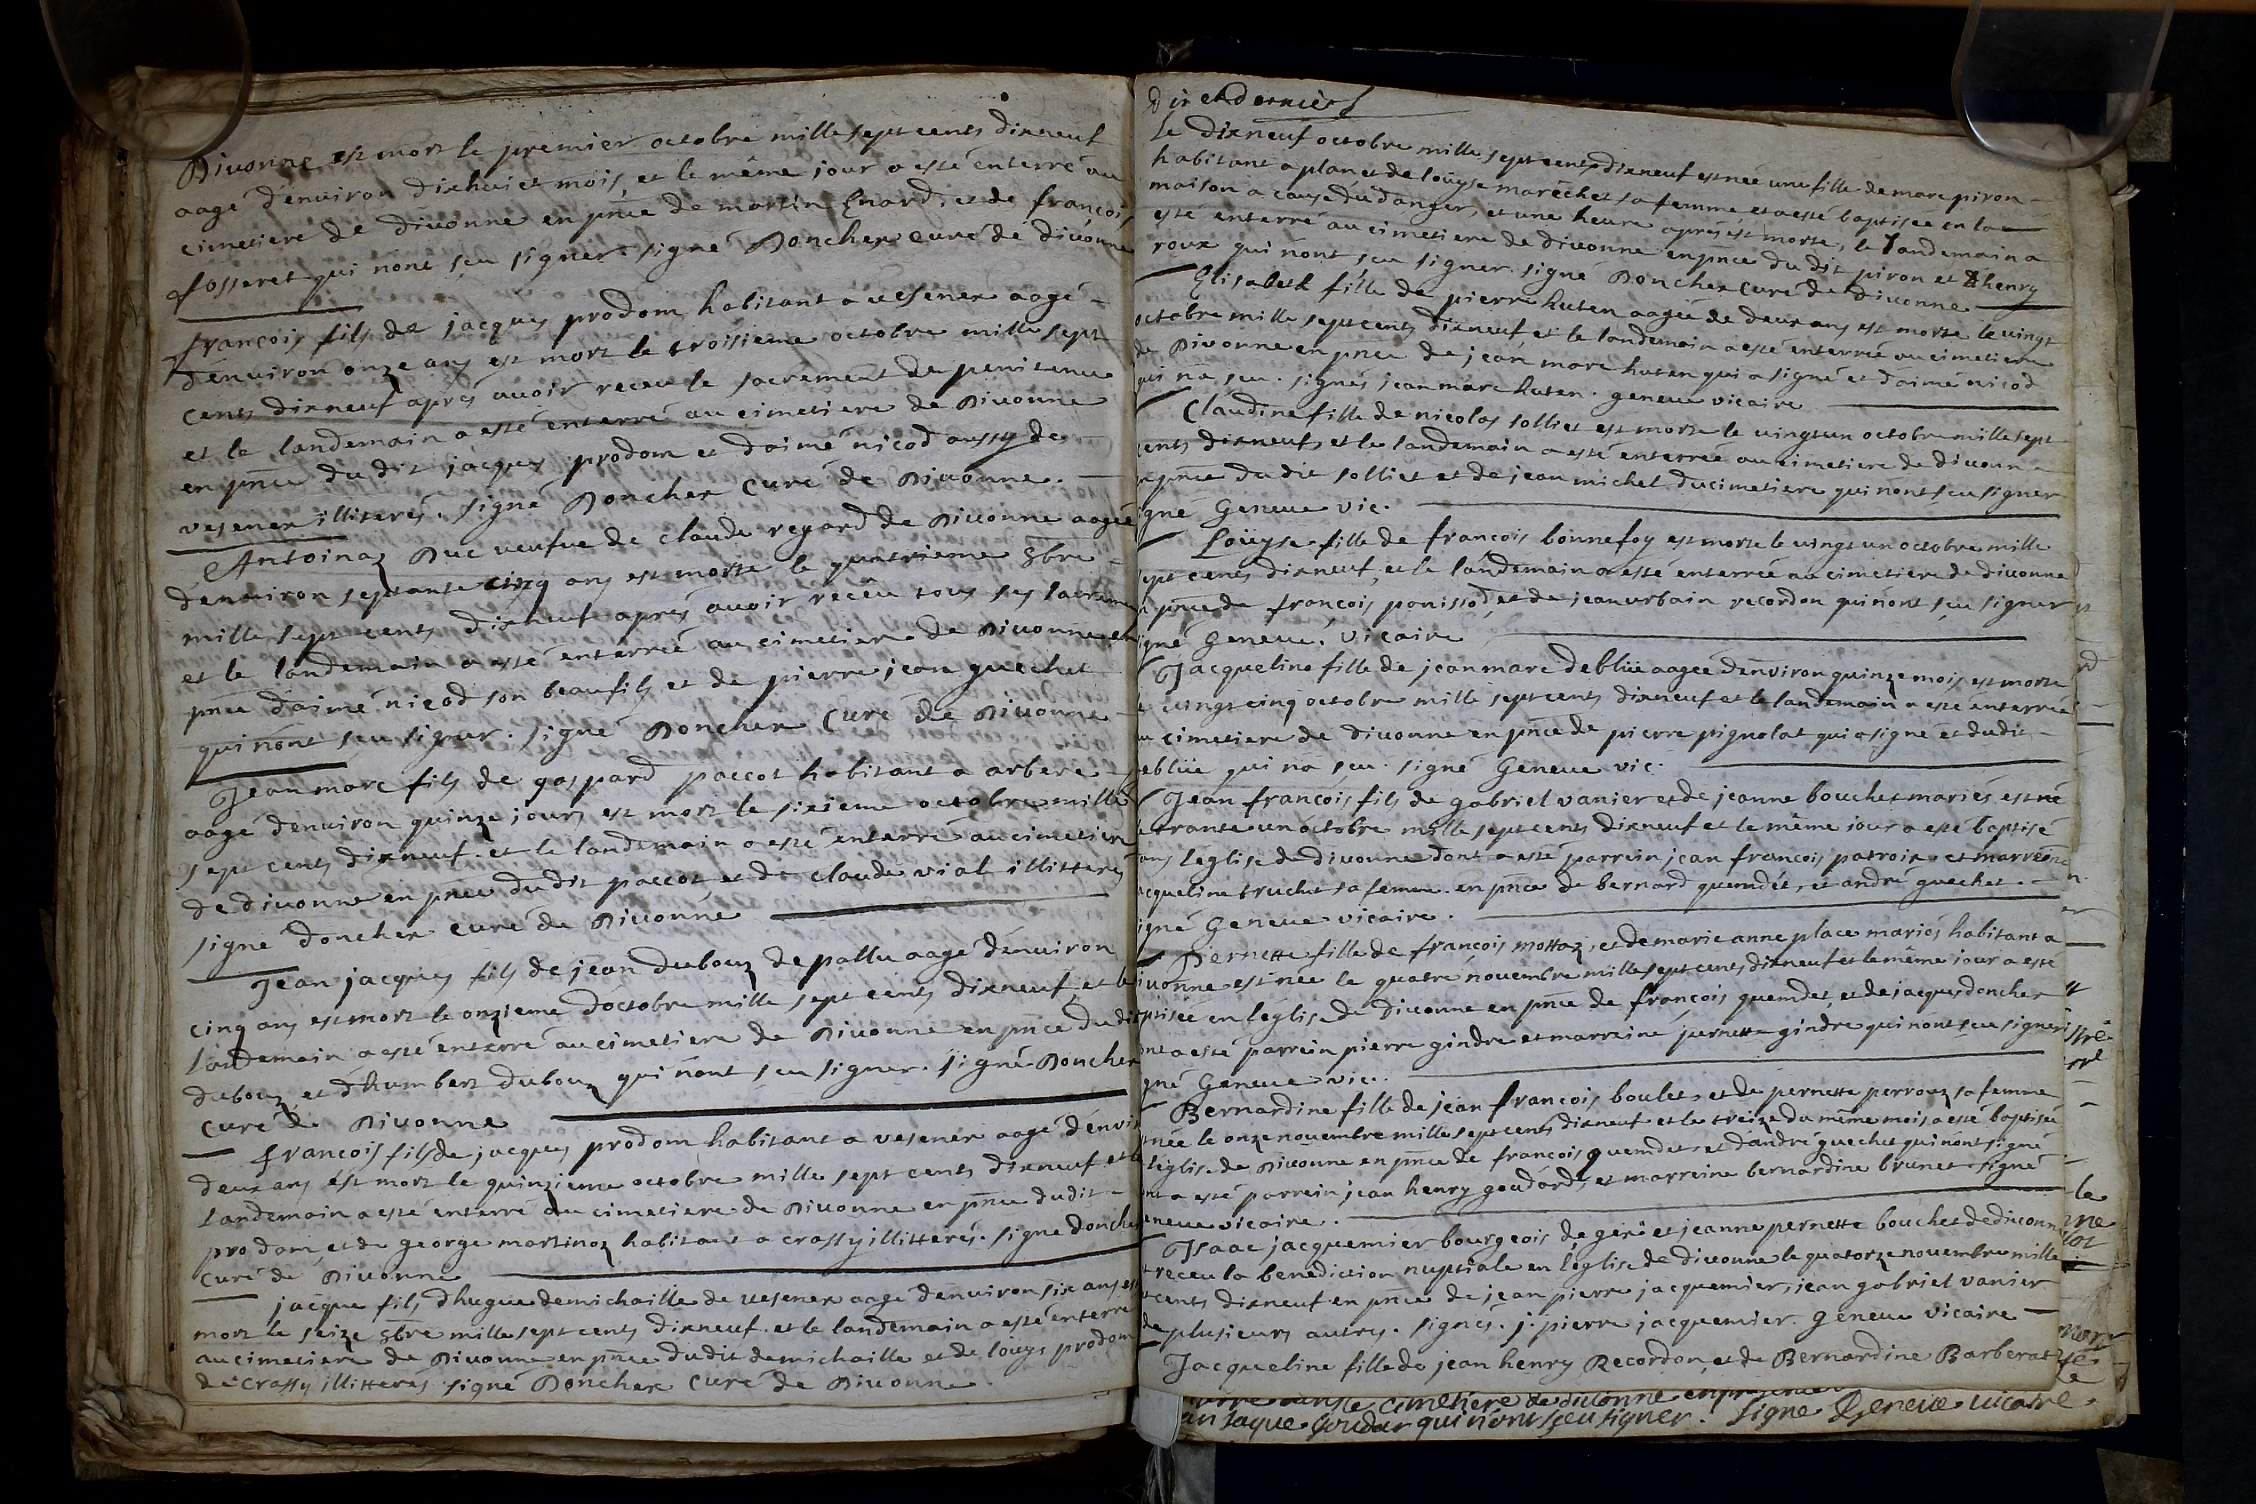 Divonne est mort le premier octobre mille sept cents dixneuf
aagé d'environ dixhuict mois, et le même jour a esté enterré au
cimetiere de divonne en pnce de martin et de françois
fosseret qui nont sçu signer. signé Doncher curé de divonne
françois fils de jacques prodom habitant a vesenex aagé
d'environ onze ans est mort le troisieme octobre mille sept
cents dixneuf apres avoir receu le sacrement de penitence
et le landemain a esté enterré au cimetiere de Divonne
en pnce du dit jacques prodom et d'aimé nicod aussy de
vesenex illiterés. signé Doncher curé de Divonne.
Antoinaz Duc veufve de claude regard de Divonne aagée
d'environ septante cinq ans est morte le quatrieme 8bre
mille sept cents dixneuf apres avoir receu tous ses sacremen
et le landemain a esté enterrée au cimetiere de Divonne en
pnce d'aimé nicod son beaufils et de pierre jean guechet
qui n'ont sçu signer. signé Doncher Curé de Divonne
Jean marc fils de gaspard paccot habitant a arbere
aagé d'environ quinze jours est mort le sixieme octobre mille
sept cents dixneuf. et le landemain a esté enterré au cimetiere
de divonne en pnce dudit paccot et de claude vial illitterés
signé doncher curé de Divonne
Jean jacques fils de jean dubouz de pallu aagé d'environ
cinq ans est mort le onzieme d'octobre mille sept cents dixneuf et le
landemain a esté enterré au cimetiere de Divonne en pnce du dit
dubouz et d'humbert dubouz qui n'ont sçu signer. signé Doncher
curé de Divonne
francois fils de jacques prodom habitant a vesenex aagé d'envir
deux ans est mort le quinzieme octobre mille sept cents dixneuf et le
landemain a esté enterré au cimetiere de Divonne en pnce dudit
prodom et de george martinaz habitant a crassy illitterés. signé donche
curé de Divonne
jacque fils d'hugue demichaille de vesenex aagé d'environ six ans est
mort le seize 8bre mille sept cents dixneuf. et le landemain a esté enterré
au cimetiere de Divonne en pnce dudit demichaille et de loüys prodom
de crassy illitterés. signé Doncher Curé de Divonne.
dix et dernier
le dixneuf octobre mille sept cents dixneuf est née une fille de marc piron
habitant a plan et de loüyse maréchet sa femme et a esté baptisée en la
maison a cause du danger, et une heure apres est morte, le landemain a
esté enterré au cimetiere de divonne en pnce du dit piron et henry
roux qui n'ont sçu signer. signé Doncher curé de Divonne
Elisabeth fille de pierre huten aagée de deux ans est morte le vingt
octobre mille sept cents dixneuf et le landemain a esté enterrée au cimetiere
de Divonne en pnce de jean marc huten qui a signé et d'aimé nicod
qui n'a sçu. signés jean marc huten. geneve vicaire
Claudine fille de nicolas solliet est morte le vingtun octobre mille sept
cents dixneuf, et le landemain a esté enterrée au cimetiere de divonne
en pnce du dit solliet et de jean michel ducimetiere qui nont sçu signer
igné Geneve vic.
Loüyse fille de francois bonnefoy est morte le vingtun octobre mille
sept cents dixneuf, et le landemain a esté enterrée au cimetiere de divonne
n pnce de francois panissod, et de jean urbain recordon qui nont sçu signer
igné Geneve. vicaire
Jacqueline fille de jean marc deblüe aagée d'environ quinze mois est morte
le vingtcinq octobre mille sept cents dixneuf et le landemain a esté enterrée
au cimetiere de divonne en pnce de pierre pignolat qui a signé et dudit
ebliie qui na sçu. signé Geneve vic.
Jean francois fils de gabriel vanier et de jeanne bouchet mariés est né
trante un octobre mille sept cents dixneuf et le même jour a esté baptisé
ans léglise de divonne dont a esté parrein jean francois patroix et marreine
acqueline truchet sa femme. en pnce de bernard quemdet, et andré guechet.
igné Geneve vicaire.
Pernette fille de françois mottaz, et de marie anne place mariés habitant a
ivonne est née le quatre novembre mille sept cents dixneuf et le même jour a esté
ptisée en l'église de Divonne en pnce de françois quemdet, et de jacques doncher
ont a esté parrein pierre gindre et marreine pernette gindre qui n'ont sçu signer
gné Geneve vic.
Bernardine fille de jean françois boulet, et de pernette perrouz sa femme
née le onze novembre mille sept cents dixneuf et le treize du même mois a esté baptisée
l'église de Divonne en pnce de françois quemdet, et d'andré guechet qui n'ont signé
nt a esté parrein jean henry goudard, et marreine bernardine brunet. signé
eneve vicaire.
Isaac jacquemier bourgeois de gex et jeanne pernette bouchet de divonne
receu la benediction nuptiale en l'église de divonne le quatorze novembre mille
cents dixneuf en pnce de jean pierre jacquemier, jean gabriel vanier
de plusieurs autres. signés. j. pierre jacquemier. Geneve vicaire
Jacqueline fille de jean henry Recordon, et de Bernardine Barberat
cimetiere de divonne en presence
an jaque Goudar qui n'ont sçeu signer. Signé Geneve vicaire.